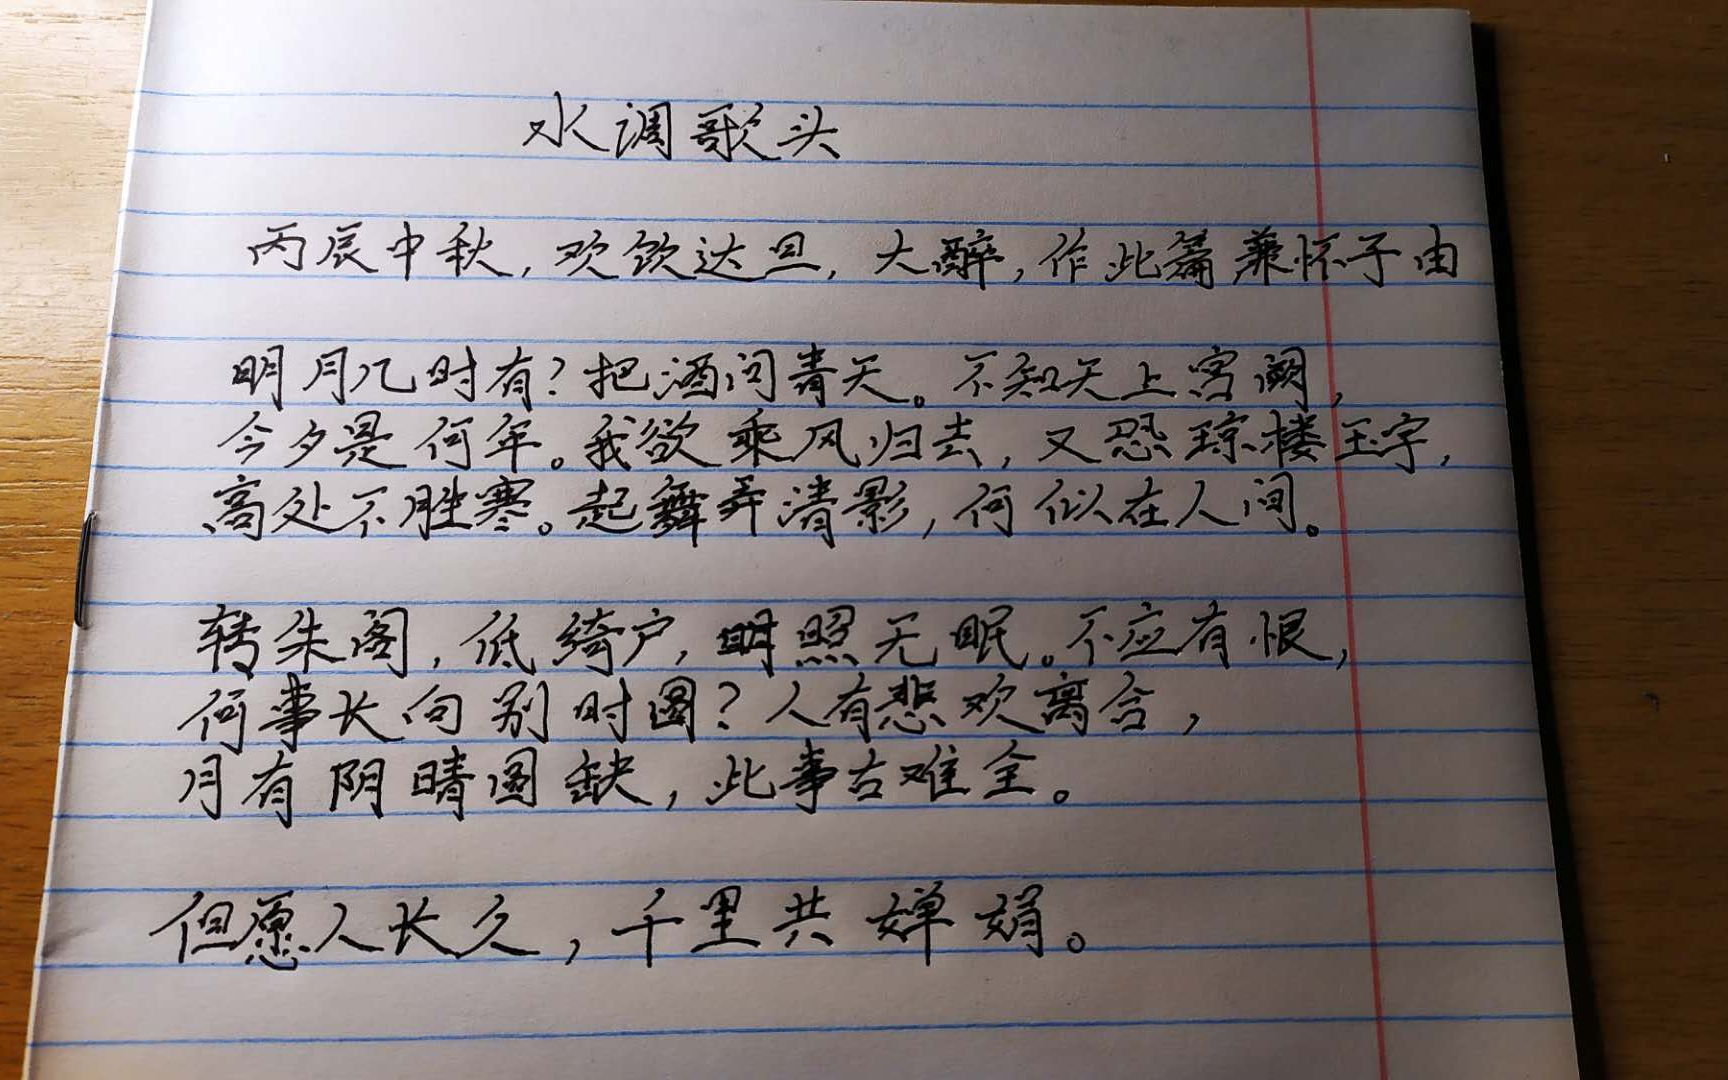 水调歌头
丙辰中秋,欢饮达旦,大醉,作此篇兼怀子由
明月几时有?把酒问青天。不知天上宫阙,
今夕是何年。我欲乘风归去,又恐琼楼玉宇,
高处不胜寒。起舞弄清影,何似在人间。
转朱阁,低绮户,明照无眠。不应有恨,
何事长向别时圆?人有悲欢离合,
月有阴晴圆缺,此事古难全。
但愿人长久,千里共婵娟。